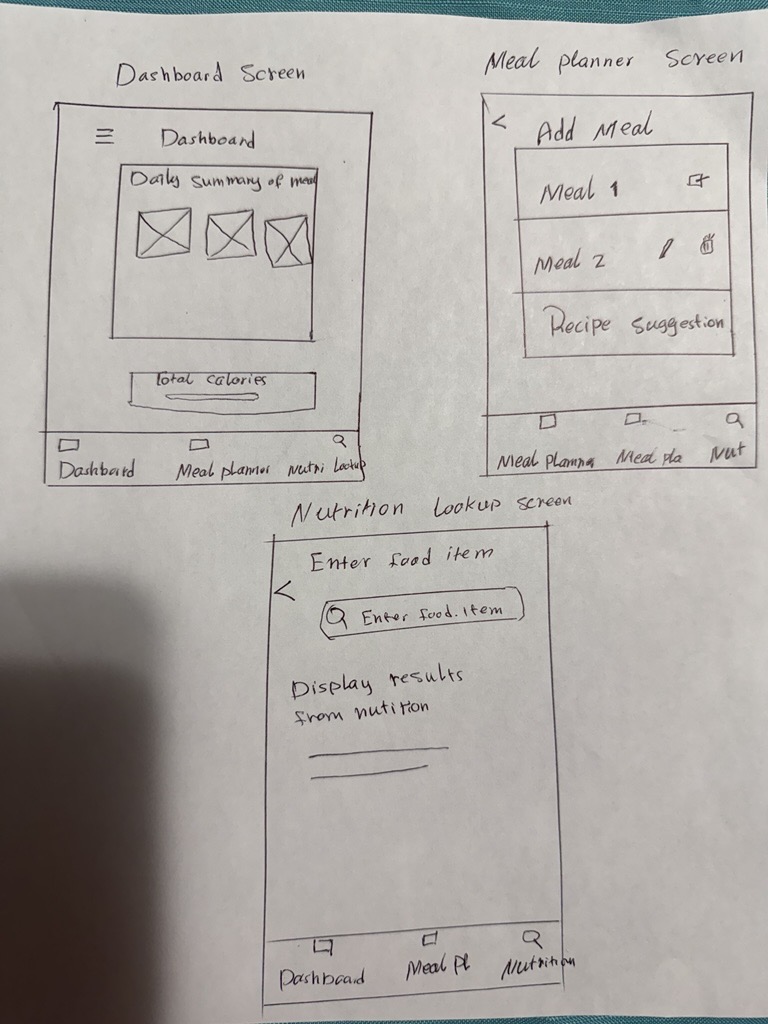 Dashboard Screen
Dashboard
Daily Summary of meal
Total Calories
Dashboard
Meal planner
Nutri Lookup
Meal planner Screen
Add Meal
Meal 1
Meal 2
Recipe Suggestion
Meal Planner
Meal pla
Nut
Nutrition Lookup screen
Enter food item
Enter food.item
Display results
from nutition
Dashboard
Meal Pl
Nutrition